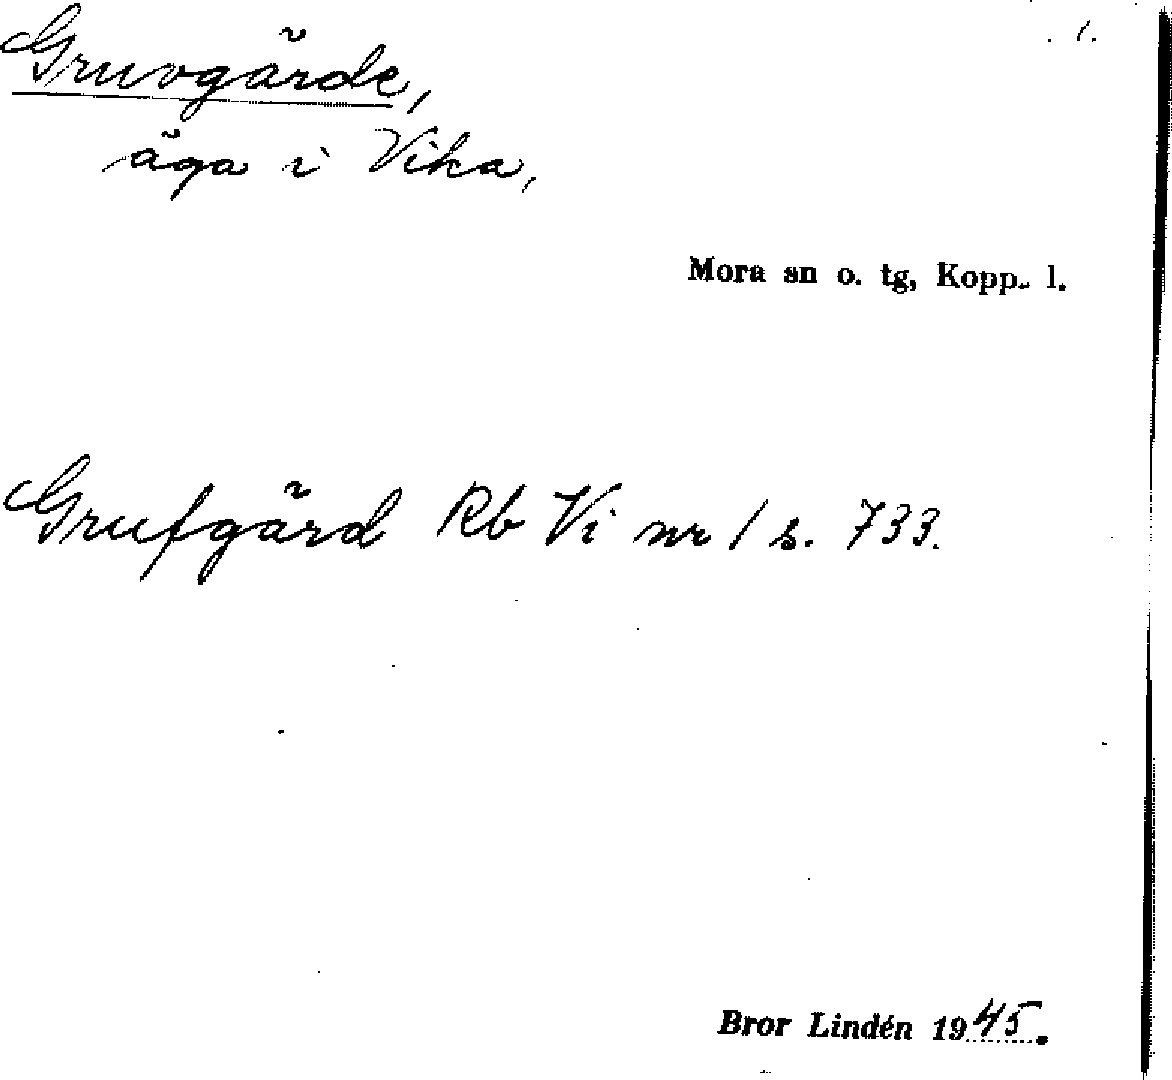 1.
Gruvgärde,
äga i Vika,
Mora sn o. tg, Kopp. l.
Grufgärd Rb Vi nr 1 s. 733.
Bror Lindén 1945.